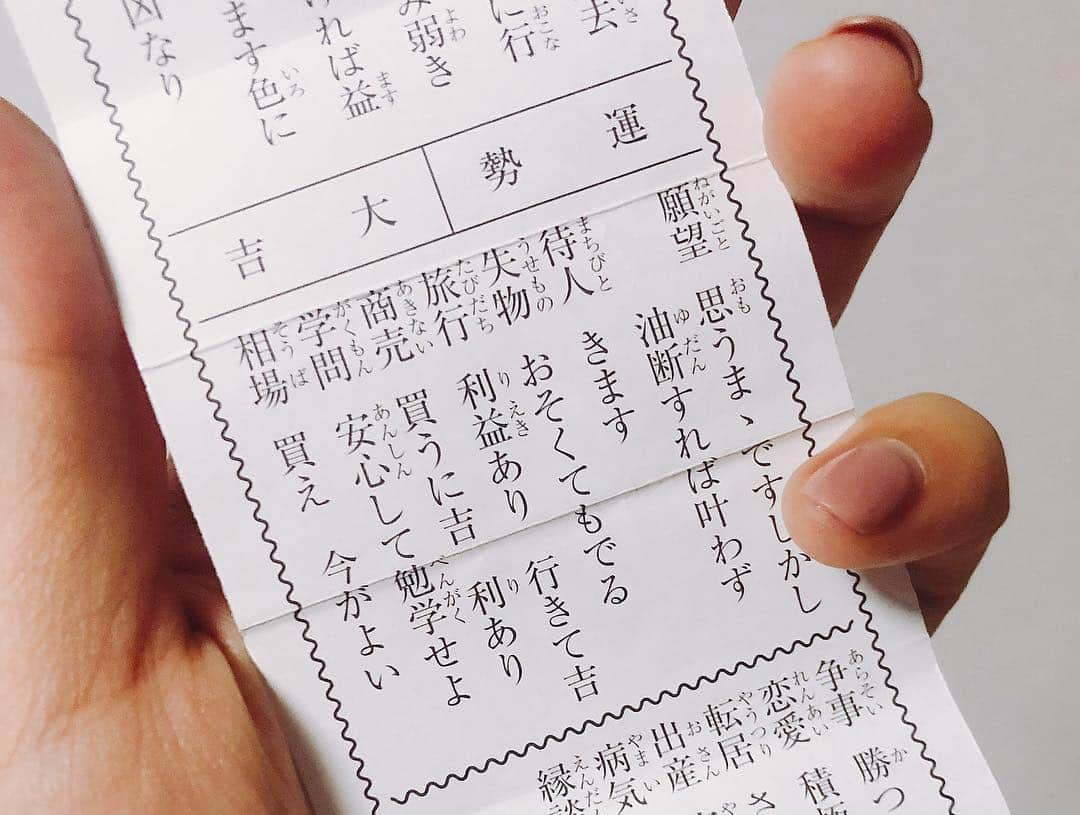 去
に行
み弱き
れば益
ます色に
凶なり
運勢
大吉
願望 思うまゝですしかし
油断すれば叶わず
待人 きます
失物 おそくてもでる
旅行 利益あり 行きて吉
商売 買うに吉 利あり
学問 安心して勉学せよ
相場 買え 今がよい
争事 勝つ
恋愛 積極
転居 さ
出産
病気
縁談